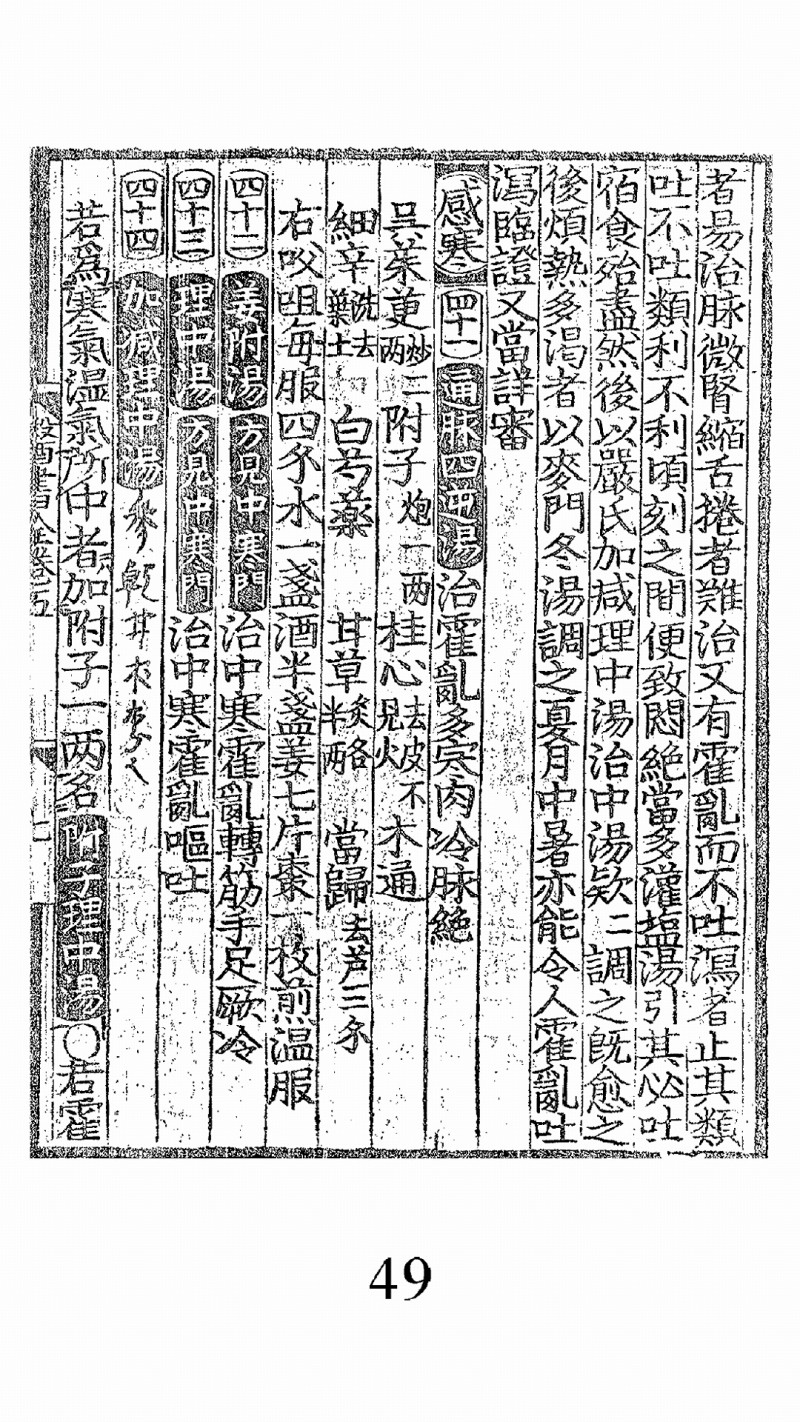 者易治脉微腎縮舌捲者難治又有霍亂而不吐瀉者止其類
吐不吐類利不利頃刻之間便致悶絶當多灌塩湯引其必吐
宿食殆盡然後以嚴氏加减理中湯治中湯欵二調之旣愈之
後煩熱多渴者以麥門冬湯調之夏月中暑亦能令人霍亂吐
瀉臨證又當詳審
感寒 四十一 通脉四逆湯 治霍亂多寒肉冷脉絶
吳茱萸炒二两 附子炮一两 桂心去皮不見火 木通
細辛洗去葉土 白芍藥 甘草炙各半两 當歸去芦三分
右㕮咀每服四分水一盞酒半盞姜七片棗一枚煎温服
四十二 姜附湯 方見中寒門 治中寒霍亂轉筋手足厥冷
四十三 理中湯 方見中寒門 治中寒霍亂嘔吐
四十四 加减理中湯
若爲寒氣濕氣所中者加附子一两名附子理中湯〇若霍
49